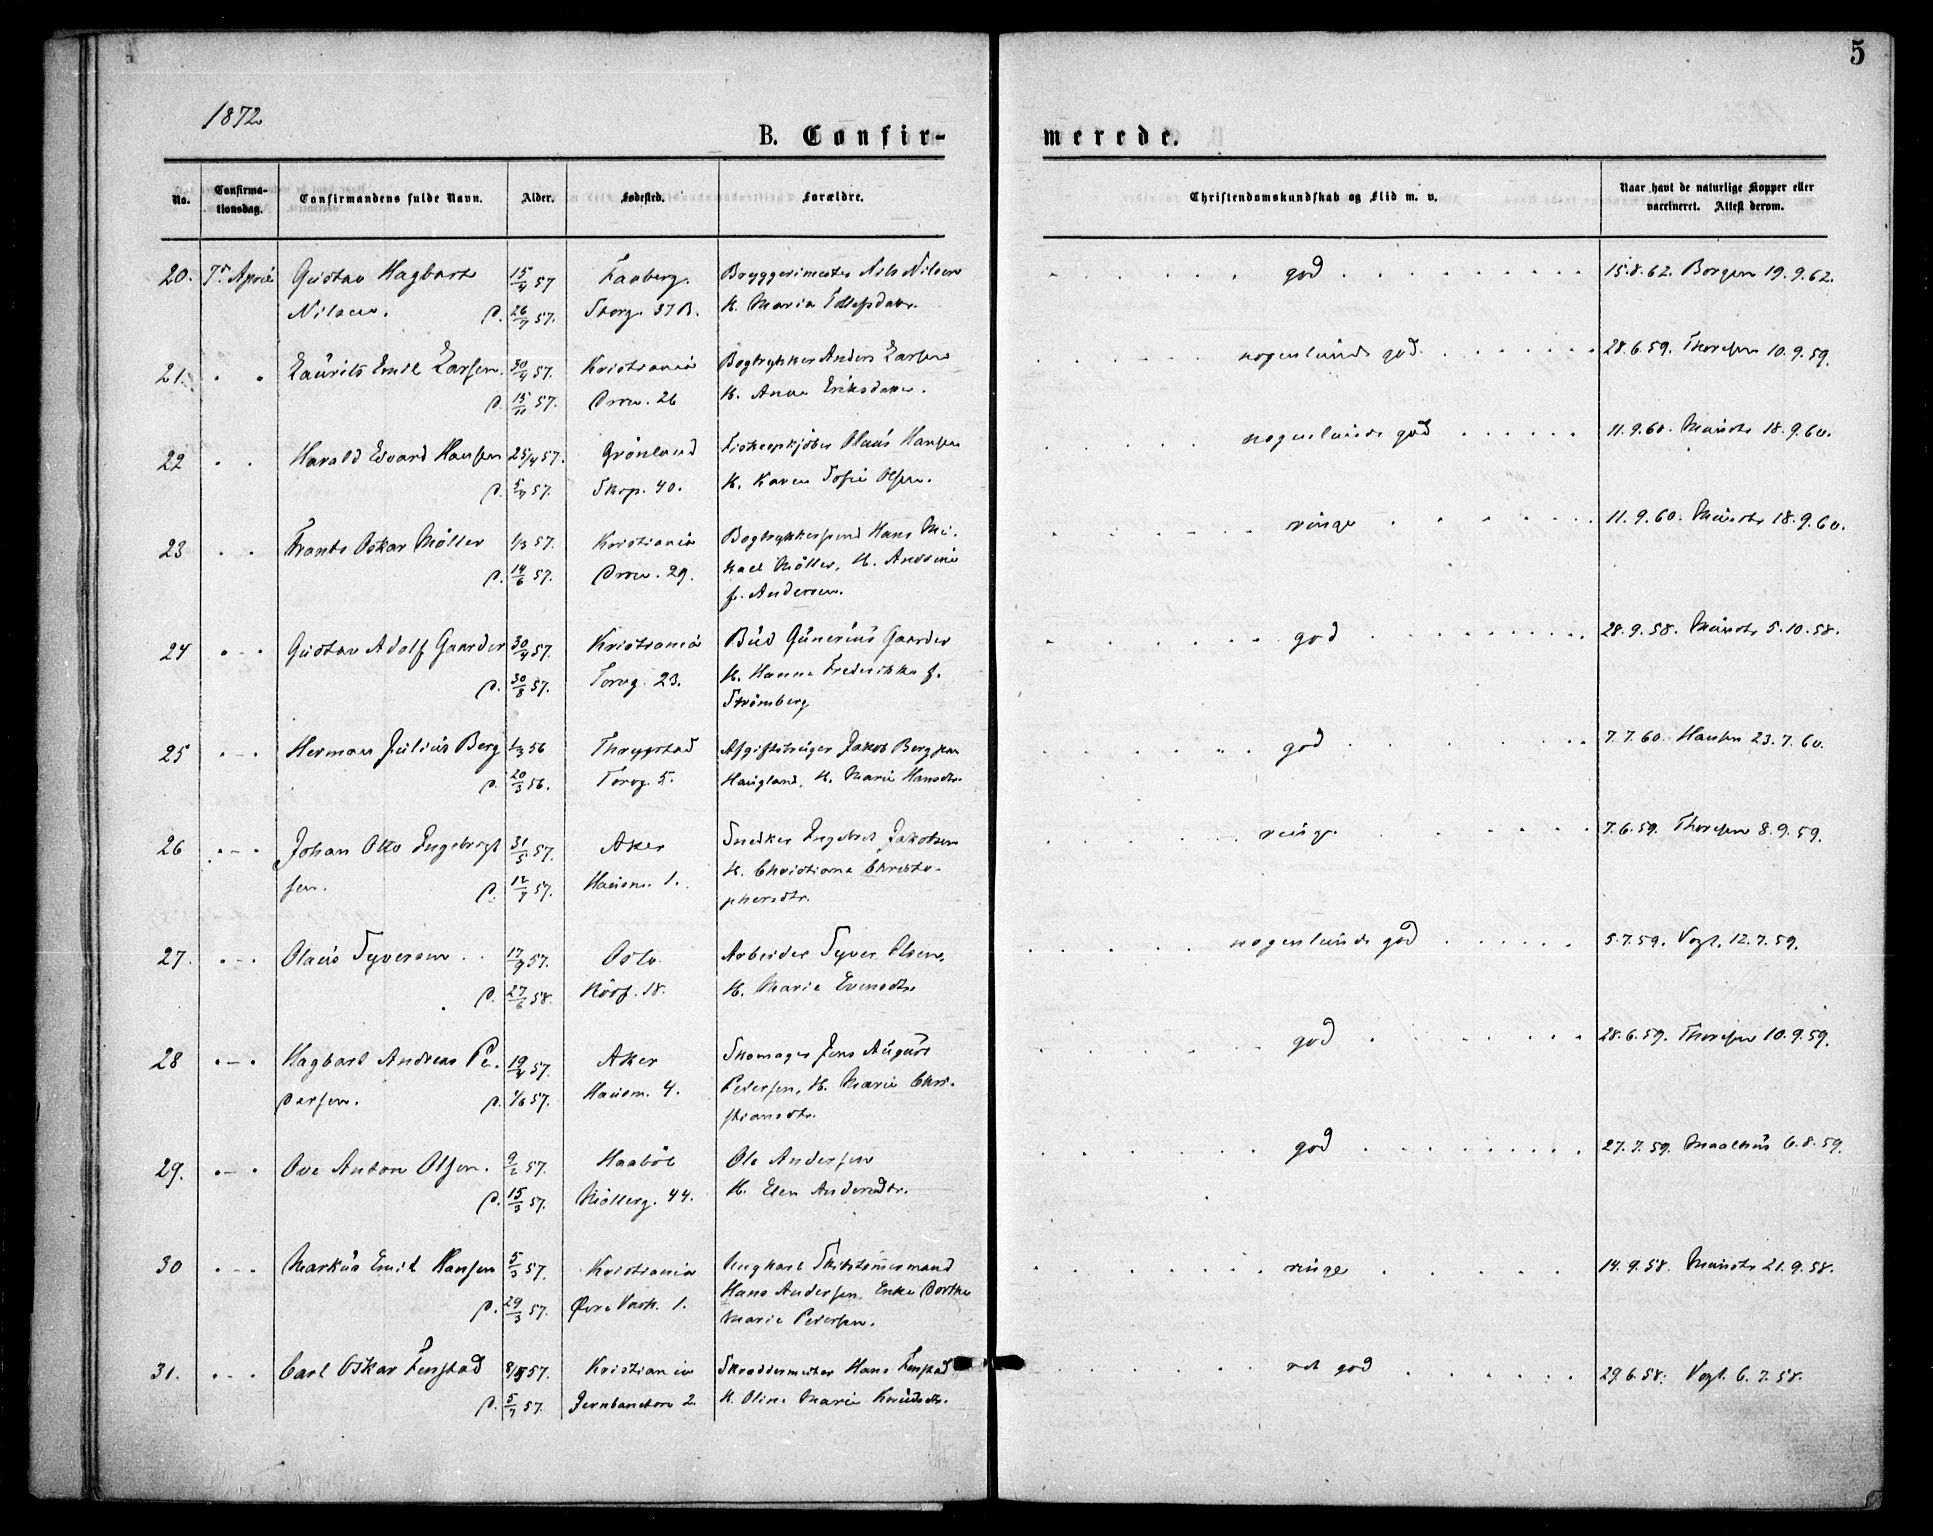 5
1872
B. Confir-
merede.
No.
Confirma-
tionsdag.
Confirmandens fulde Navn.
Alder.
Fødested.
Forældre.
Christendomskundskab og Flid m. v.
Naar havt de naturlige Kopper eller
vaccineret. Attest derom.
20. 7de April Gustav Hagbart 15/4 57 Faaberg. Bryggerimester Nils Nilsen god 15.8.62. Borgen 19.9.62.
Nilsen. d. 26/7 57. Storg. 37 B. H. Maria
21. Laurits Emil Larsen 30/4 57. Kristiania Bogtrykker Anders Larsen nogenlunde god 28.6.59. Thoresen 10.9.59.
d. 15/11 57. 26 H. Anne Eriksdatter.
22 Harald Edvard Hansen 25/4 57. Grønland Olaus Hansen nogenlunde god 11.9.60. 18.9.60.
d. 5/7 57. Skip. 40. H. Karen Sofie Olsen.
23 Frants Oskar Møller 1/3 57. Kristiania Bogtrykkersvend Hans Mi- ringe 11.9.60. 18.9.60.
d. 14/6 57. 29. kael Møller, H.
f. Andersen.
24 Gustav Adolf Gaarder 30/4 57. Kristiania Bud Gunerius Gaarder god 28.9.58. 5.10.58.
d. 30/8 57. Torvg. 23. H. Hanne Frederikke f.
Strömberg
25 Herman Julius Berg 56 Thrygstad Jakob Berg god 7.7.60. Hansen 23.7.60.
d. 20/3 56. Torvg. 5. Haugland, H. Marie Hansdtr.
26 Johan Otto Engebregt 31/5 57. Aker Snedker Engebret Jakobsen ringe 7.6.59. Thoresen 8.9.59.
sen. d. 12/7 57. Hausm. 1. H. Christiane Christo-
phersdtr.
27. Olaus Syversen 17/9 57. Oslo Arbeider Syver Olsen, nogenlunde god 5.7.59. Vogt. 12.7.59.
d. 27/6 58. 18. H. Marie Evensdtr.
28 Hagbart Andreas Pe- 19/4 57. Aker Skomager Jens August god 28.6.59. Thoresen 10.9.59.
dersen. d. 1/6 57. Hausm. 4. Pedersen, H. Marie Chri-
stiansdtr.
29. Ove Anton Olsen. 9/2 57. Haabøl Ole Andersen god 27.7.59. 6.8.59.
d. 15/3 57. Møllerg. 44. H. Elen Andersdtr.
30 Markus Emil Hansen 5/3 57. Kristiania Ungkarl Skibstømmermand ringe 14.9.58. 21.9.58.
d. 29/3 57. Øvre Vash. 1. Hans Andersen, Enke Dorthe
Marie Petersen.
31. Carl Oskar Fenstad 57. Kristiania Skreddermester Hans Fenstad god 29.6.58. Vogt. 6.7.58.
d. 5/7 57. Jernbanetorv 2. H. Oline Marie Knudsdtr.